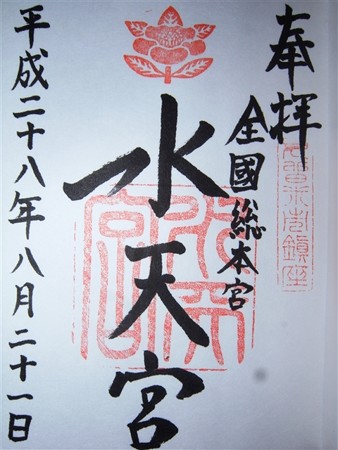 奉拝
全國総本宮
水天宮
平成二十八年八月二十一日